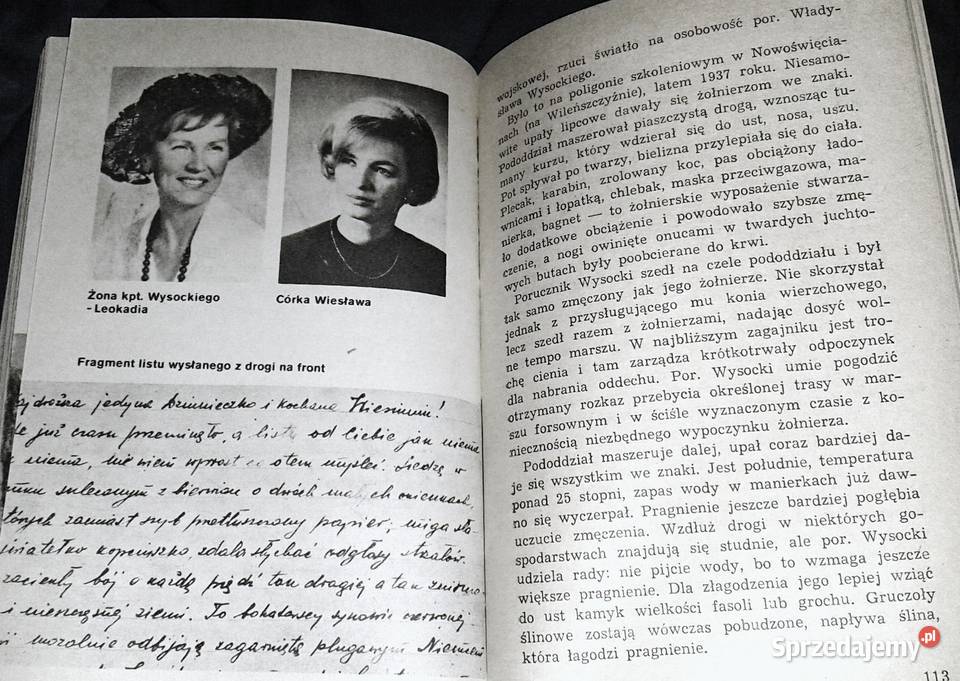 Żona kpt. Wysockiego
- Leokadia
Córka Wiesława
Fragment listu wysłanego z drogi na front
jedyna Dzinnieczko i kochana
już czasu przeminęło, a listu od Ciebie jak niema
niema, nie wiem wprost co o tem myśleć. Siedzę w
z bierwion o dwóch małych okienkach,
których zamiast szyb przetłuszczony papier, miga sła-
światełko kopciuszka, zdala słychać odgłosy strzałów.
zacienty bój o każdą piędź tan drogiej a tan
i nieszczęsnej ziemi. To bohaterscy synowie czerwonej
moralnie odbijają zagarniętą plugawym
wojskowej, rzuci światło na osobowość por. Włady-
sława Wysockiego.
Było to na poligonie szkoleniowym w Nowoświęcia-
nach (na Wileńszczyźnie), latem 1937 roku. Niesamo-
wite upały lipcowe dawały się żołnierzom we znaki.
Pododdział maszerował piaszczystą drogą, wznosząc tu-
many kurzu, który wdzierał się do ust, nosa, uszu.
Pot spływał po twarzy, bielizna przylepiała się do ciała.
Plecak, karabin, zrolowany koc, pas obciążony łado-
wnicami i łopatką, chlebak, maska przeciwgazowa, ma-
nierka, bagnet — to żołnierskie wyposażenie stwarza-
ło dodatkowe obciążenie i powodowało szybsze zmę-
czenie, a nogi owinięte onucami w twardych juchto-
wych butach były poobcierane do krwi.
Porucznik Wysocki szedł na czele pododdziału i był
tak samo zmęczony jak jego żołnierze. Nie skorzystał
jednak z przysługującego mu konia wierzchowego,
lecz szedł razem z żołnierzami, nadając dosyć wol-
ne tempo marszu. W najbliższym zagajniku jest tro-
chę cienia i tam zarządza krótkotrwały odpoczynek
dla nabrania oddechu. Por. Wysocki umie pogodzić
otrzymany rozkaz przebycia określonej trasy w mar-
szu forsownym i w ściśle wyznaczonym czasie z ko-
niecznością niezbędnego wypoczynku żołnierza.
Pododdział maszeruje dalej, upał coraz bardziej da-
je się wszystkim we znaki. Jest południe, temperatura
ponad 25 stopni, zapas wody w manierkach już daw-
no się wyczerpał. Pragnienie jeszcze bardziej pogłębia
uczucie zmęczenia. Wzdłuż drogi w niektórych go-
spodarstwach znajdują się studnie, ale por. Wysocki
udziela rady: nie pijcie wody, bo to wzmaga jeszcze
większe pragnienie. Dla złagodzenia jego lepiej wziąć
do ust kamyk wielkości fasoli lub grochu. Gruczoły
ślinowe zostają wówczas pobudzone, napływa ślina,
która łagodzi pragnienie.
113
Sprzedajemy.pl